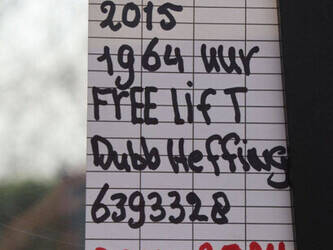 2015
1964 uur
FrEE lifT
Dubb Heffing
6393328